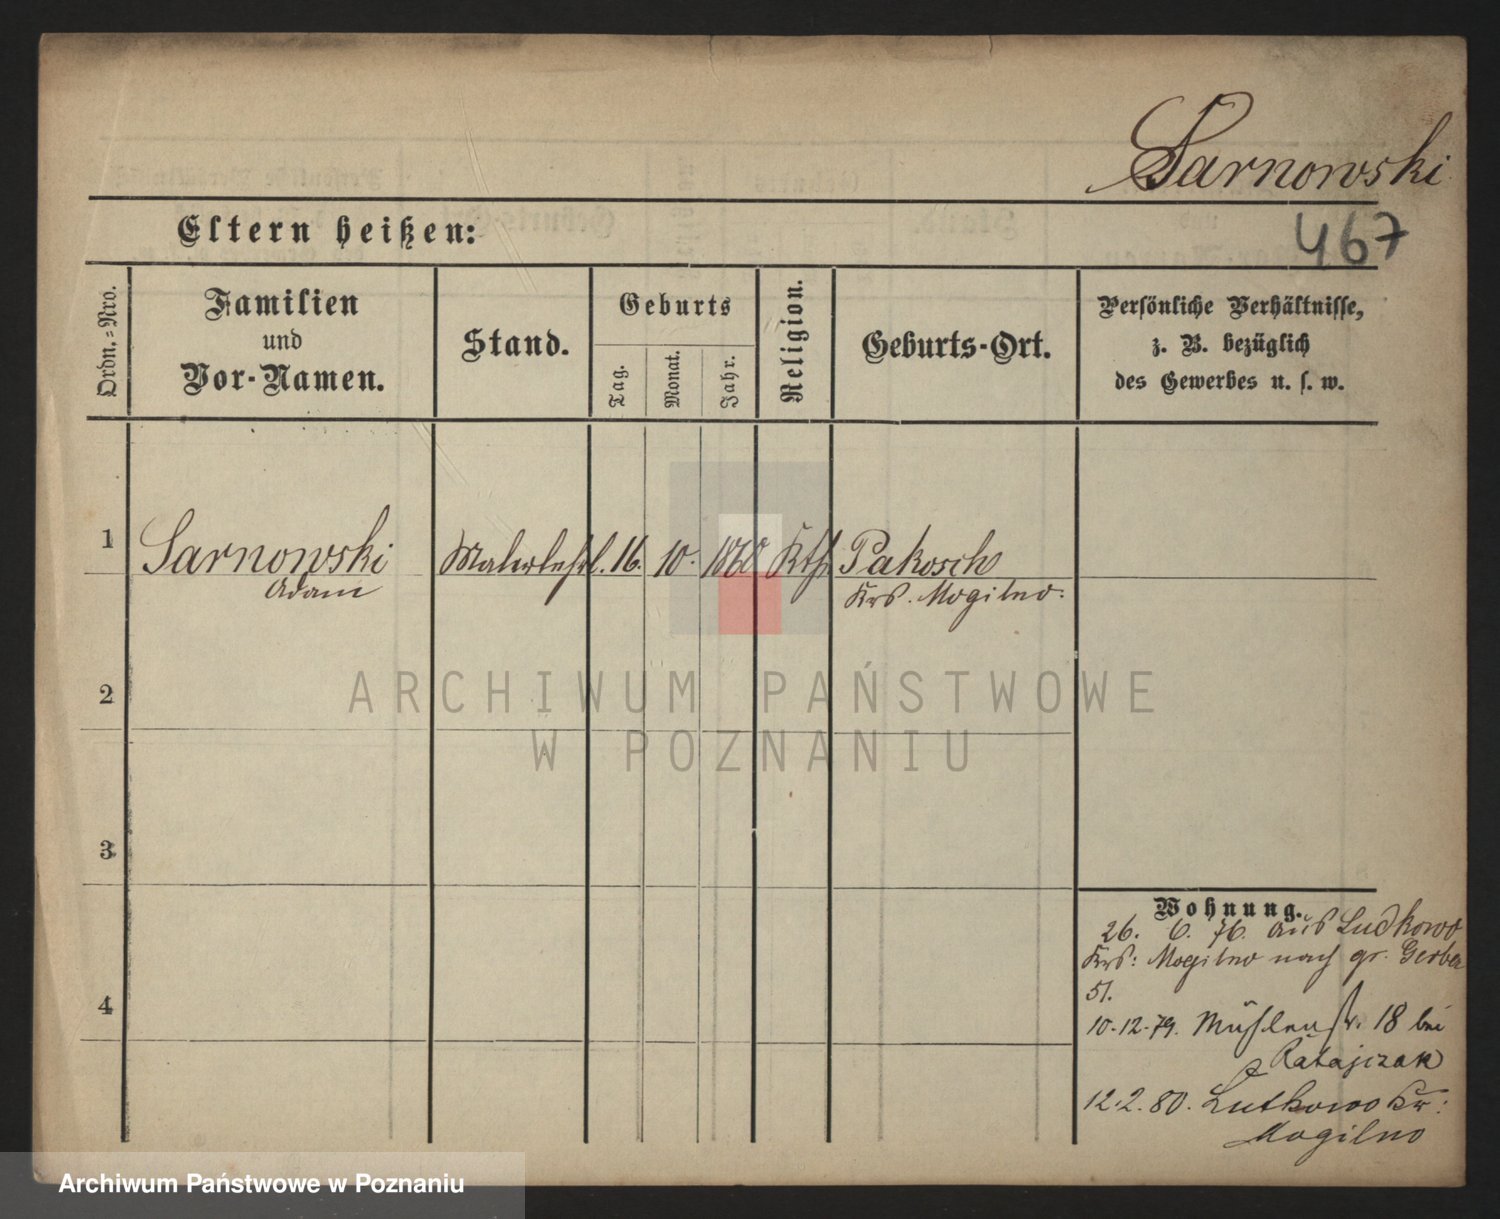 Sarnowski
467
Eltern heißen:
Ordn.-Nro.
Familien
und
Vor-Namen.
Stand.
Geburts
Tag.
Monat.
Jahr.
Religion.
Geburts-Ort.
Persönliche Verhältnisse,
z. B. bezüglich
des Gewerbes u. s. w.
1
Sarnowski
Adam
Malerlehrl.
16.
10.
1860
Kth.
Pakosch
Krs. Mogilno.
2
3
4
Wohnung.
26. 6. 76. aus Ludkowo
Krs: Mogilno nach gr. Gerber
51.
10.12.79. Mühlenstr. 18 bei
Ratajczak
12.2.80. Lutkowo Kr:
Mogilno
ARCHIWUM PAŃSTWOWE
W POZNANIU
Archiwum Państwowe w Poznaniu